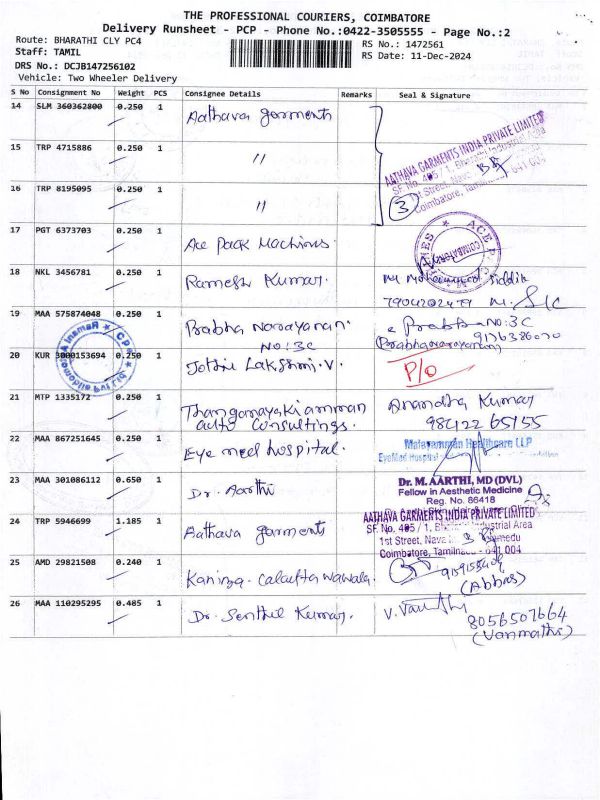 THE PROFESSIONAL COURIERS, COIMBATORE
Delivery Runsheet - PCP - Phone No.:0422-3505555 - Page No.:2
Route: BHARATHI CLY PC4
RS No.: 1472561
Staff: TAMIL
RS Date: 11-Dec-2024
DRS No.: DCJB147256102
Vehicle: Two Wheeler Delivery
S No Consignment No Weight PCS Consignee Details Remarks Seal & Signature
14 SLM 360362800 0.250 1 Aathava garments
15 TRP 4715886 0.250 1 〃
AATHAVA GARMENTS INDIA PRIVATE LIMITED
SF. No. 405 / 1, Bharathi Industrial Area
1st Street, Nava
Coimbatore, Tamilnadu - 641 004
16 TRP 8195095 0.250 1 〃
3
17 PGT 6373703 0.250 1 Ace Pack Machines.
COIMBATORE
18 NKL 3456781 0.250 1 Ramesh Kumar.
19 MAA 575874048 0.250 1 Prabha Narayanan
NO: 3C
Prabha NO: 3C
(Prabhanarayanan)
20 KUR 3000153694 0.250 1 Jothi Lakshmi. V.
P/O
21 MTP 1335172 0.250 1 Thanganayakiamman
auto Consultings.
Anandha Kumar
98422 65155
22 MAA 867251645 0.250 1 Eye med hospital.
Healthcare LLP
EyeMed Hospital
Foundation
23 MAA 301086112 0.650 1 Dr. Aarthi
Dr. M. AARTHI, MD (DVL)
Fellow in Aesthetic Medicine
Reg. No. 86418
24 TRP 5946699 1.185 1 Aathava garments
AATHAVA GARMENTS INDIA PRIVATE LIMITED
SF. No. 405 / 1, Bharathi Industrial Area
1st Street, Nava
Coimbatore, Tamilnadu - 641 004
25 AMD 29821508 0.240 1 Kaniza. Calcuttawawala.
(Abbas)
26 MAA 110295295 0.485 1 Dr. Senthil Kumar.
8056507664
(Vanmathi)